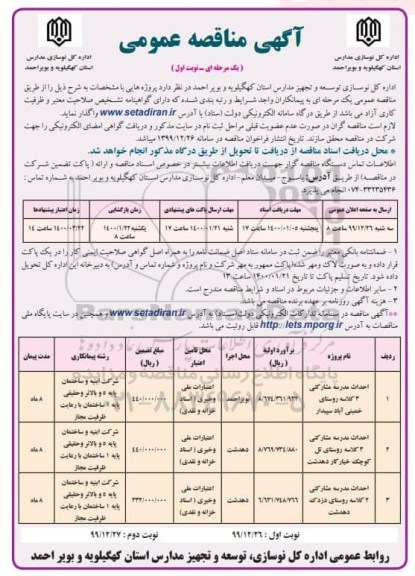 آگهی مناقصه عمومی
( یک مرحله ای – نوبت اول )
اداره کل نوسازی مدارس
استان کهگیلویه و بویراحمد
اداره کل نوسازی مدارس
استان کهگیلویه و بویراحمد
اداره کل نوسازی توسعه و تجهیز مدارس استان کهگیلویه و بویر احمد در نظر دارد پروژه هایی با مشخصات به شرح ذیل را از طریق
مناقصه عمومی یک مرحله ای به پیمانکاران واجد شرایط و رتبه بندی شده که دارای گواهینامه تشخیص صلاحیت معتبر و ظرفیت
کاری آزاد می باشد از طریق درگاه سامانه الکترونیکی دولت (ستاد) با آدرس www.setadiran.ir واگذار نماید.
لازم است مناقصه گران در صورت عدم عضویت قبلی مراحل ثبت نام در سایت مذکور و دریافت گواهی امضای الکترونیکی را جهت
شرکت در مناقصه محقق سازند. تاریخ انتشار فراخوان مناقصه در سامانه ۱۳۹۹/۱۲/۲۶ میباشد
* محل دریافت اسناد مناقصه از دریافت تا تحویل از طریق درگاه مذکور انجام خواهد شد.
اطلاعات تماس دستگاه مناقصه گزار جهت دریافت اطلاعات بیشتر در خصوص اسناد مناقصه و ارائه ( پاکت تضمین شرکت
در مناقصه) از طریق آدرس: یاسوج - میدان معلم - اداره کل نوسازی مدارس استان کهگیلویه و بویراحمد به شماره تماس :
۰۷۴-۳۳۲۳۵۴۳۶ انجام می پذیرد
ارسال به صفحه اعلان عمومی | مهلت دریافت اسناد | مهلت ارسال پاکت های پیشنهادی | زمان بازگشایی | زمان اعتبار پیشنهادها
سه شنبه ۹۹/۱۲/۲۶ ساعت ۸ | پنجشنبه ۱۴۰۰/۰۱/۰۵ ساعت ۱۷ | شنبه ۱۴۰۰/۰۱/۲۱ ساعت ۱۷ | یکشنبه ۱۴۰۰/۱/۲۲ ساعت ۸ | ۱۴۰۰/۰۴/۲۲ ساعت ۱۴
۱ - ضمانتنامه بانکی معتبر را ضمن ثبت در سامانه ستاد اصل ضمانت نامه را به همراه اصل گواهی صلاحیت ایمنی کار را در یک پاکت
قرار داده و به صورت لاک ومهر شده (پاکت ممهور به مهر شرکت و نام پروژه و شماره تماس و آدرس) به دبیرخانه این اداره کل تحویل
داده شود. تاریخ تسلیم پاکت تا تاریخ ۱۴۰۰/۰۱/۲۱ ساعت ۱۳
۲ - سایر اطلاعات و جزئیات مربوط در اسناد و شرایط مناقصه مندرج است.
۳ - هزینه آگهی روزنامه بر عهده برنده مناقصه می باشد.
**آگهی مناقصه در سامانه تدارکات الکترونیکی دولت(ستاد) به آدرس www.setadiran.ir و همچنین در سایت پایگاه ملی
مناقصات به آدرس http://iets.mporg.ir قابل رویت می باشد.
ردیف | نام پروژه | برآورد اولیه (ریال) | محل اجرا | محل تامین اعتبار | مبلغ تضمین (ریال) | رشته پیمانکاری | مدت پیمان
۱ | احداث مدرسه مشارکتی ۳ کلاسه روستای خمینی آباد سپیدار | ۸/۶۷۴/۳۶۱/۹۲۲ | بویراحمد | اعتبارات ملی وخیری ( اسناد خزانه و نقدی) | ۴۴۰/۰۰۰/۰۰۰ | شرکت ابنیه و ساختمان پایه ۵ و بالاتر وحقیقی پایه ۱ ساختمان با رعایت ظرفیت مجاز | ۸ ماه
۲ | احداث مدرسه مشارکتی ۳ کلاسه روستای تل کوچک خیارکار دهدشت | ۸/۷۶۹/۷۳۴/۸۸۰ | دهدشت | اعتبارات ملی وخیری ( اسناد خزانه و نقدی) | ۴۴۰/۰۰۰/۰۰۰ | شرکت ابنیه و ساختمان پایه ۵ و بالاتر وحقیقی پایه ۱ ساختمان با رعایت ظرفیت مجاز | ۸ ماه
۳ | احداث مدرسه مشارکتی ۲ کلاسه روستای دزدک دهدشت | ۶/۶۳۱/۷۴۸/۷۶۶ | دهدشت | اعتبارات ملی وخیری ( اسناد خزانه و نقدی) | ۳۳۲/۰۰۰/۰۰۰ | شرکت ابنیه و ساختمان پایه ۵ و بالاتر وحقیقی پایه ۱ ساختمان با رعایت ظرفیت مجاز | ۸ ماه
نوبت اول : ۹۹/۱۲/۲۶ نوبت دوم : ۹۹/۱۲/۲۷
روابط عمومی اداره کل نوسازی، توسعه و تجهیز مدارس استان کهگیلویه و بویر احمد